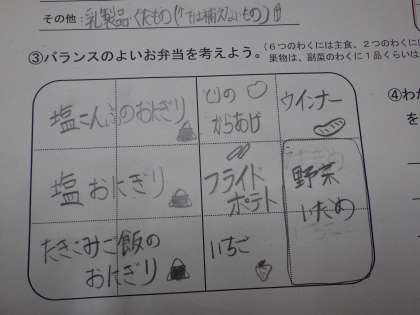 その他：乳製品くだもの(では補えないもの)
③バランスのよいお弁当を考えよう。
(6つのわくには主食、2つのわくに
果物は、副菜のわくに1品くらい
塩こんぶのおにぎり
とりの
からあげ
ウインナー
塩おにぎり
フライド
ポテト
野菜
いため
たきこみご飯の
おにぎり
いちご
④わ
を